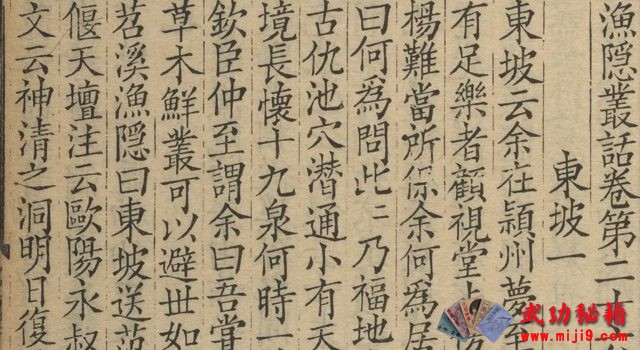 漁隱叢話卷第二十
東坡一
東坡云余在潁州夢至
有足樂者顧視堂上
楊難當所保余何爲居
曰何爲問此〻乃福地
古仇池穴潛通小有天
境長懷十九泉何時一
欽臣仲至謂余曰吾嘗
草木鮮叢可以避世如
苕溪漁隱曰東坡送范
偃天壇注云歐陽永叔
文云神清之洞明日復
武功秘籍
www.miji9.com